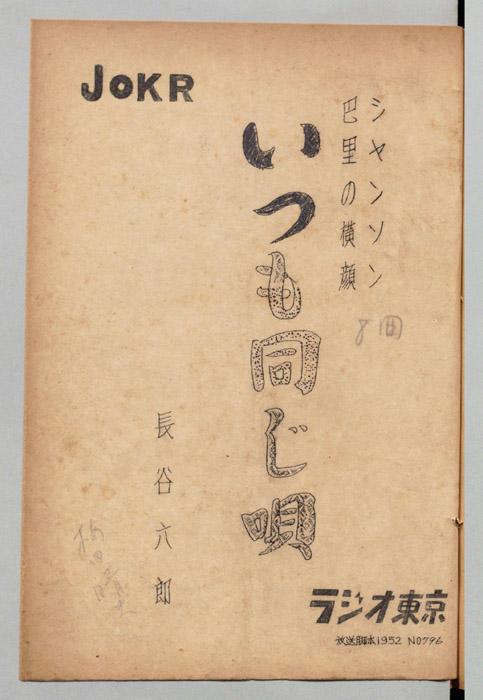 JOKR
シャンソン
巴里の横顔
8回
いつも同じ唄
長谷六郎
ラジオ東京
放送脚本1952 NO796